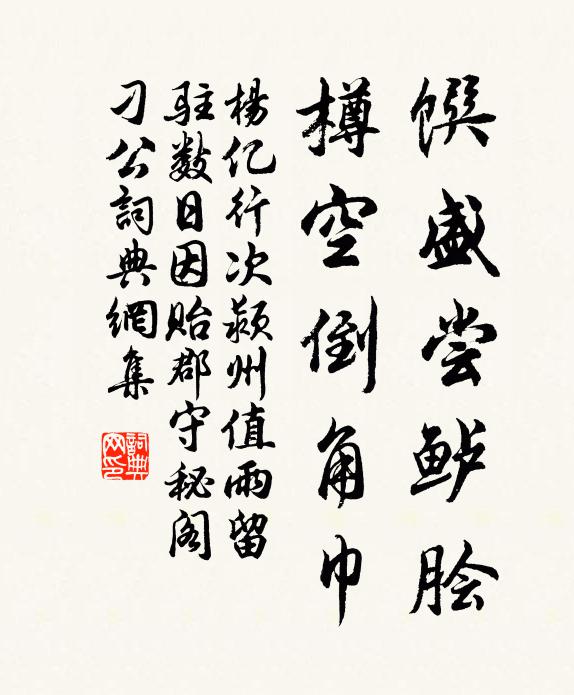 馔盛尝鲈脍
樽空倒角巾
楊亿行次颍州值雨留
驻數日因貽郡守秘阁
刁公詞典網集
詞典网印